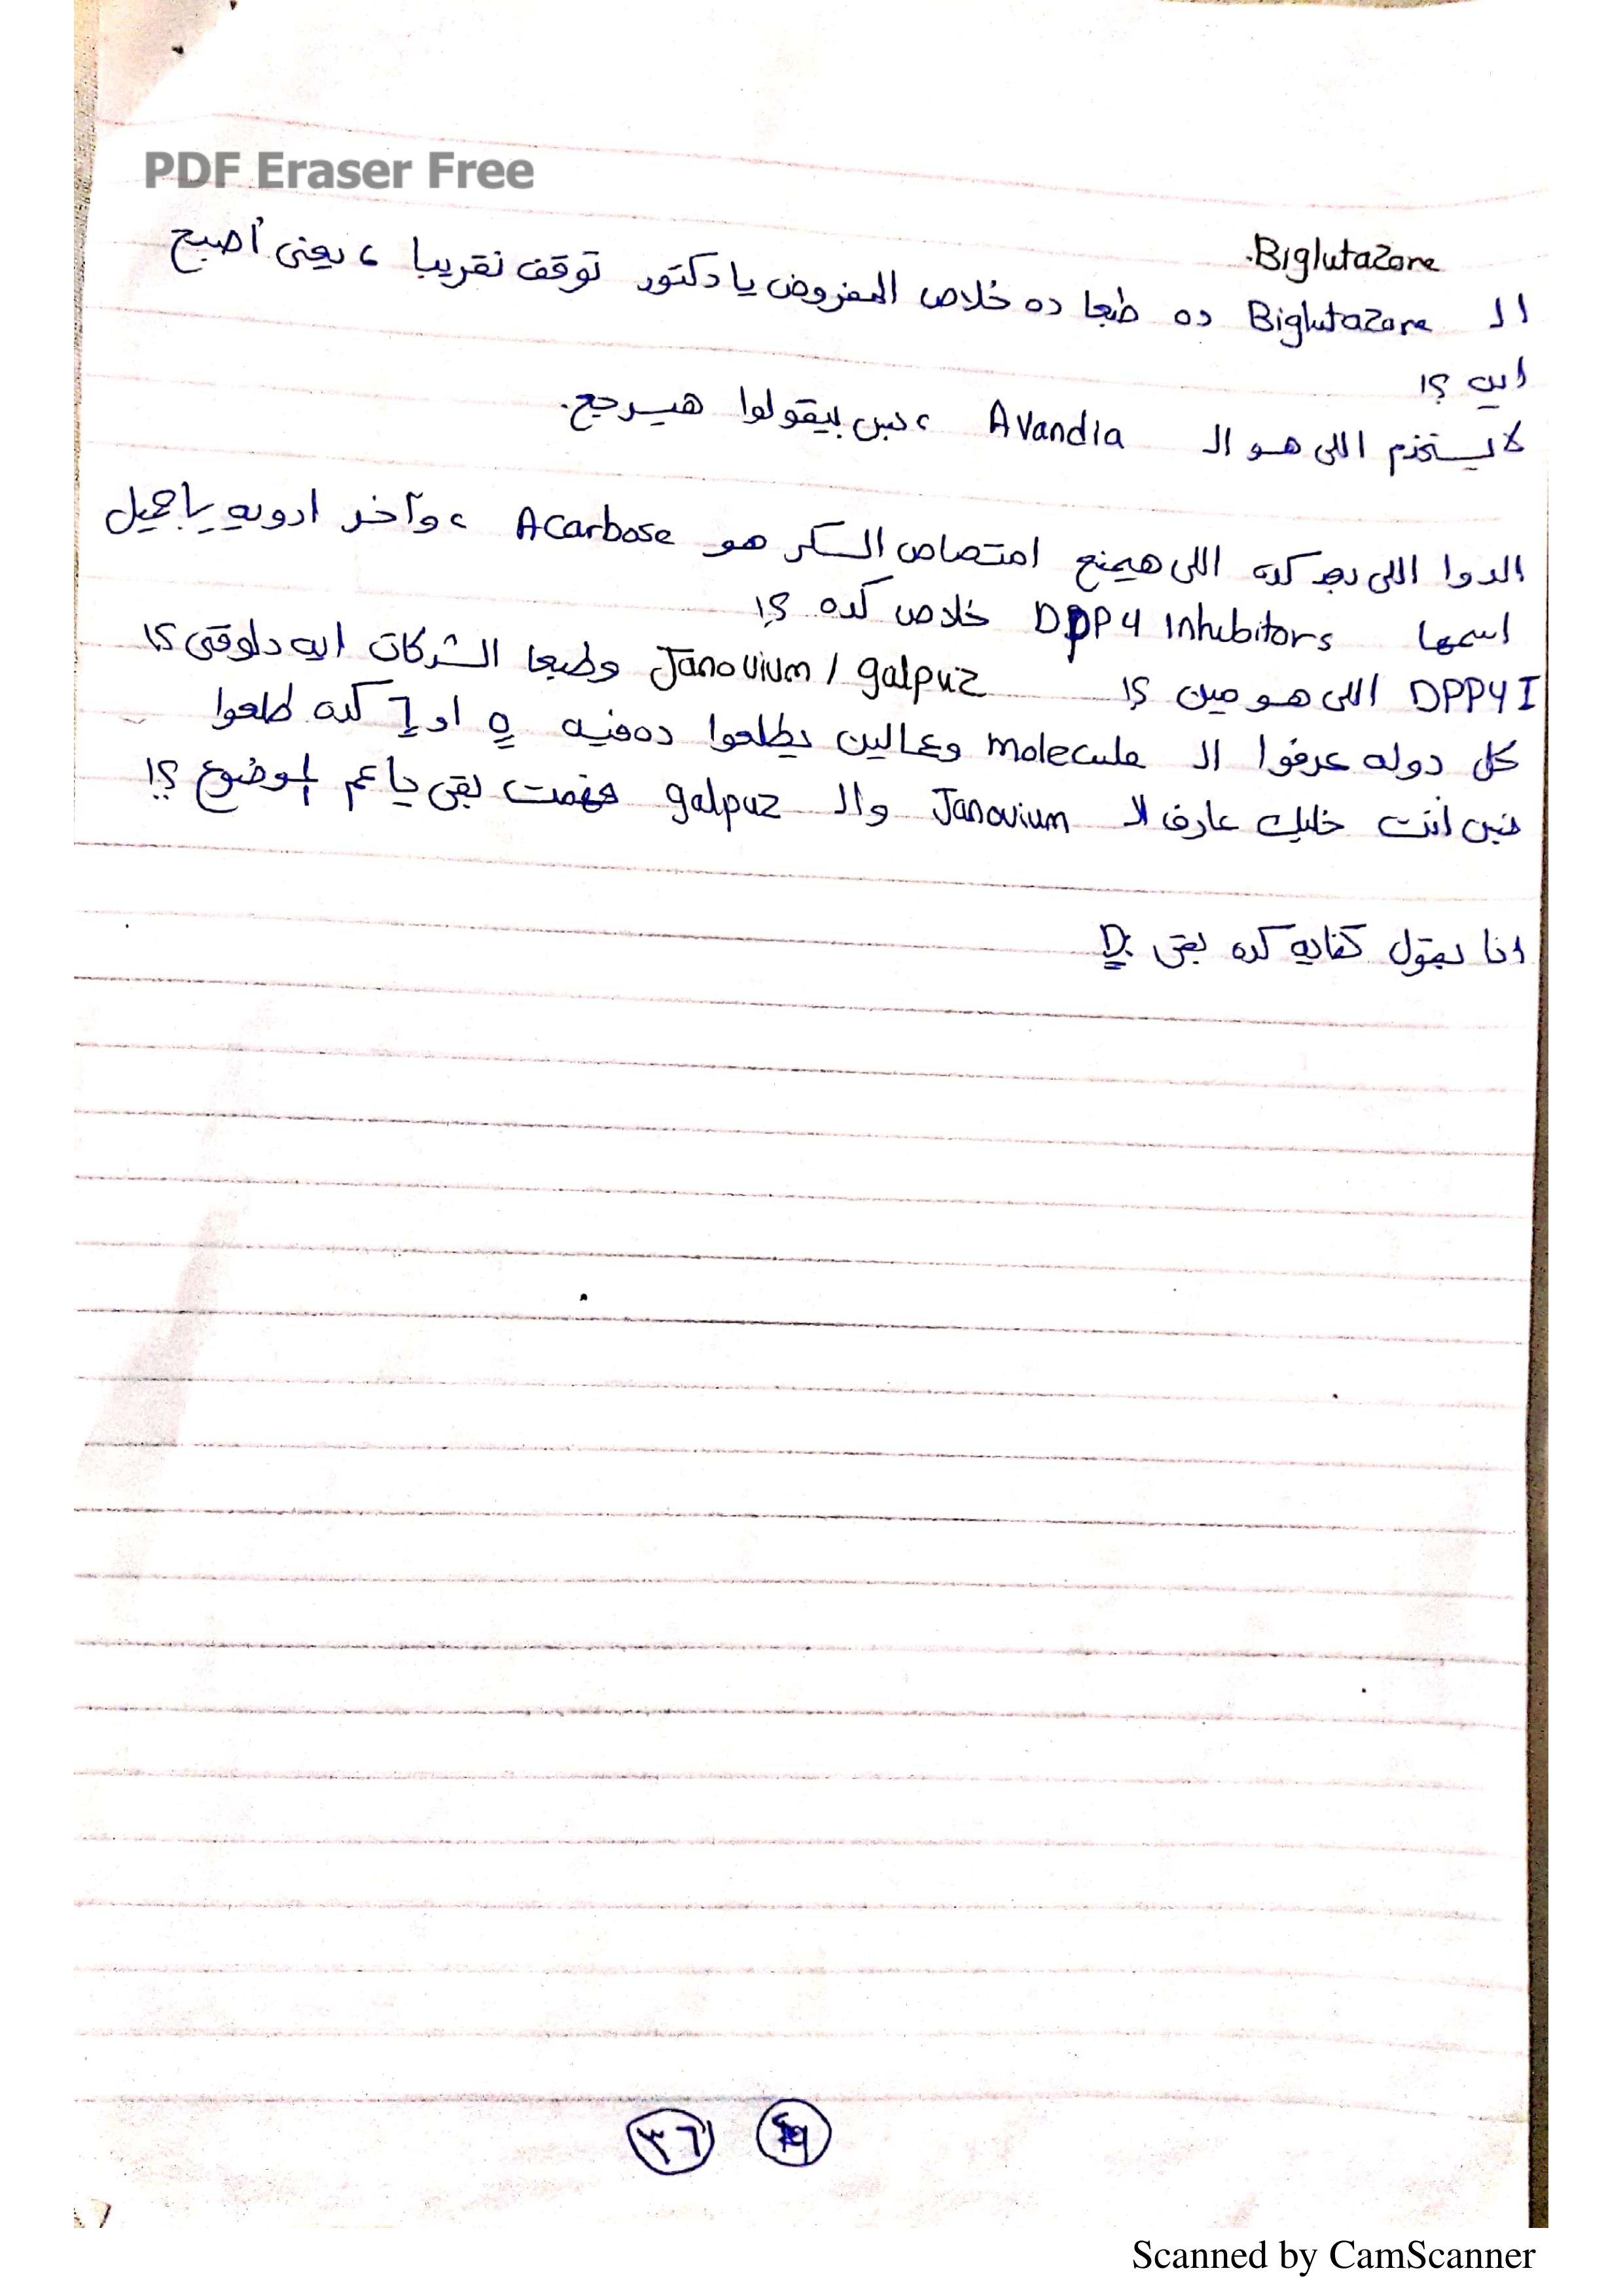 PDF Eraser Free
Biglutazone.
الـ Biglutazone ده طبعا ده خلاص المفروض يا دكتور توقف تقريبا ، يعنى أصبح
ايه ؟!
لا يستخدم اللى هو الـ Avandia ، بس بيقولوا هيرجع.
الدوا اللى بعد كده اللى هيمنع امتصاص السكر هو Acarbose ، وآخر ادويه يا جميل
اسمها DPP4 Inhibitors خلاص كده ؟!
DPP4I اللى هو مين ؟! Janovium / galpuz وطبعا الشركات ايه دلوقتى ؟!
كل دوله عرفوا الـ molecule وعمالين يطلعوا ده فيه ٥ او ٦ كده طلعوا
فبس أنت خليك عارف الـ Janovium والـ galpuz فهمت بقى يا عم الموضوع ؟!
انا بقول كفايه كده بقى :D
٣٦
Scanned by CamScanner